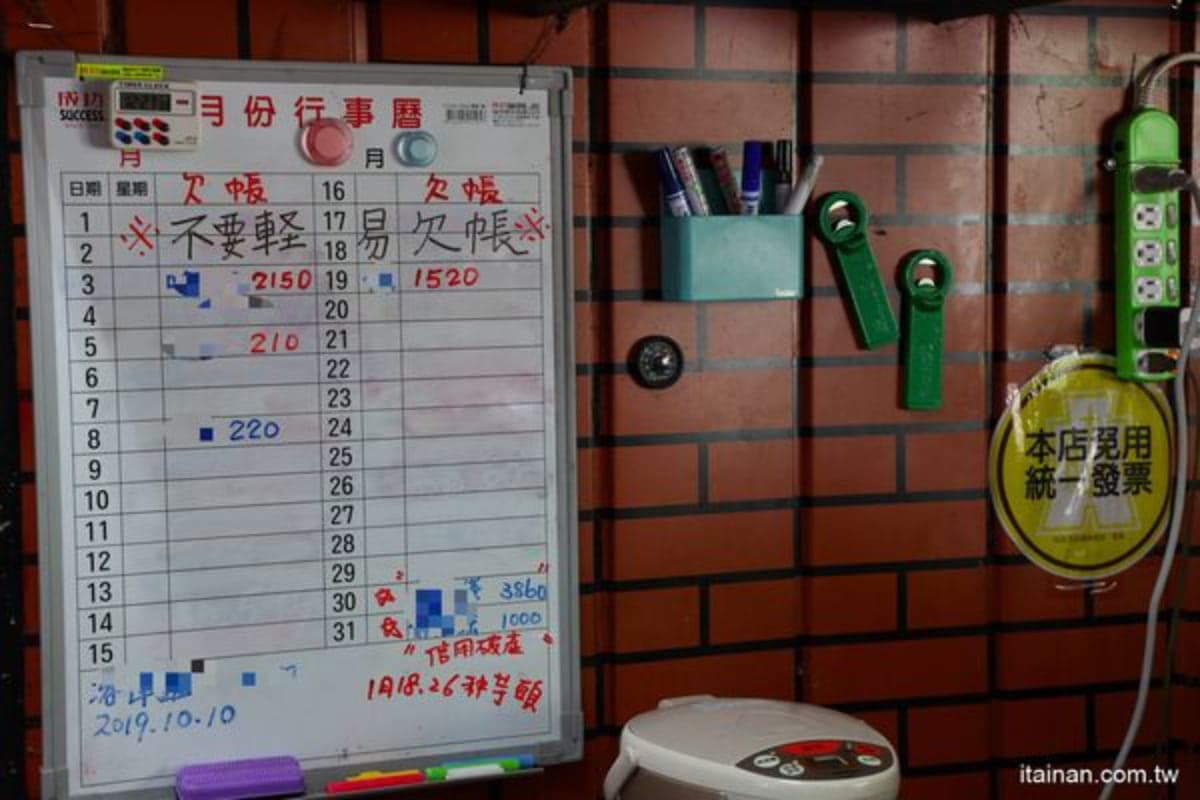 成功
SUCCESS
月份行事曆
月
月
日期 星期 欠帳 16 欠帳
1 ※不要輕 17 易欠帳※
2 18
3 2150 19 1520
4 20
5 210 21
6 22
7 23
8 220 24
9 25
10 26
11 27
12 28
13 29
14 30 3860
15 31 1000
"信用破產"
1月18.26種芋頭
2019.10.10
本店免用
統一發票
itainan.com.tw